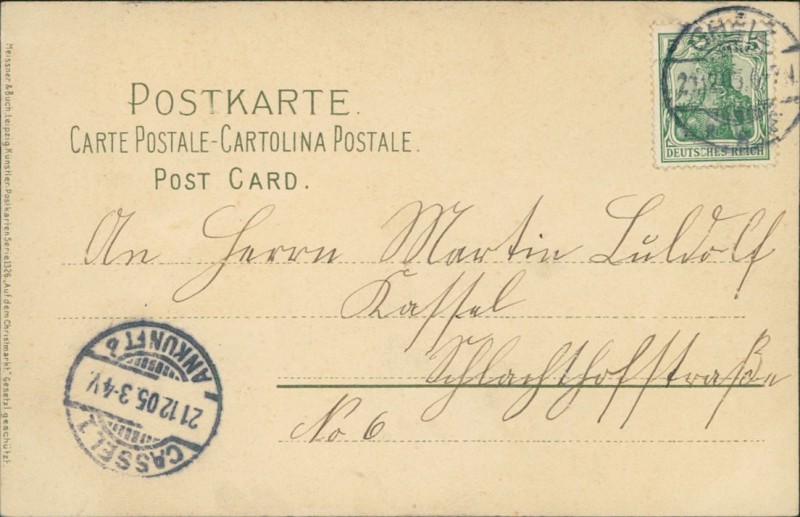 POSTKARTE.
CARTE POSTALE-CARTOLINA POSTALE.
POST CARD.
5 5
DEUTSCHES REICH
An Herrn Martin Luldolf
Kassel
Schlachthofstraße
No 6
CASSEL 1
21.12.05.3-4V.
ANKUNFT
Meissner & Buch, Leipzig, Künstler-Postkarten Serie 1326 „Auf dem Christmarkt“ Gesetzl. geschützt.